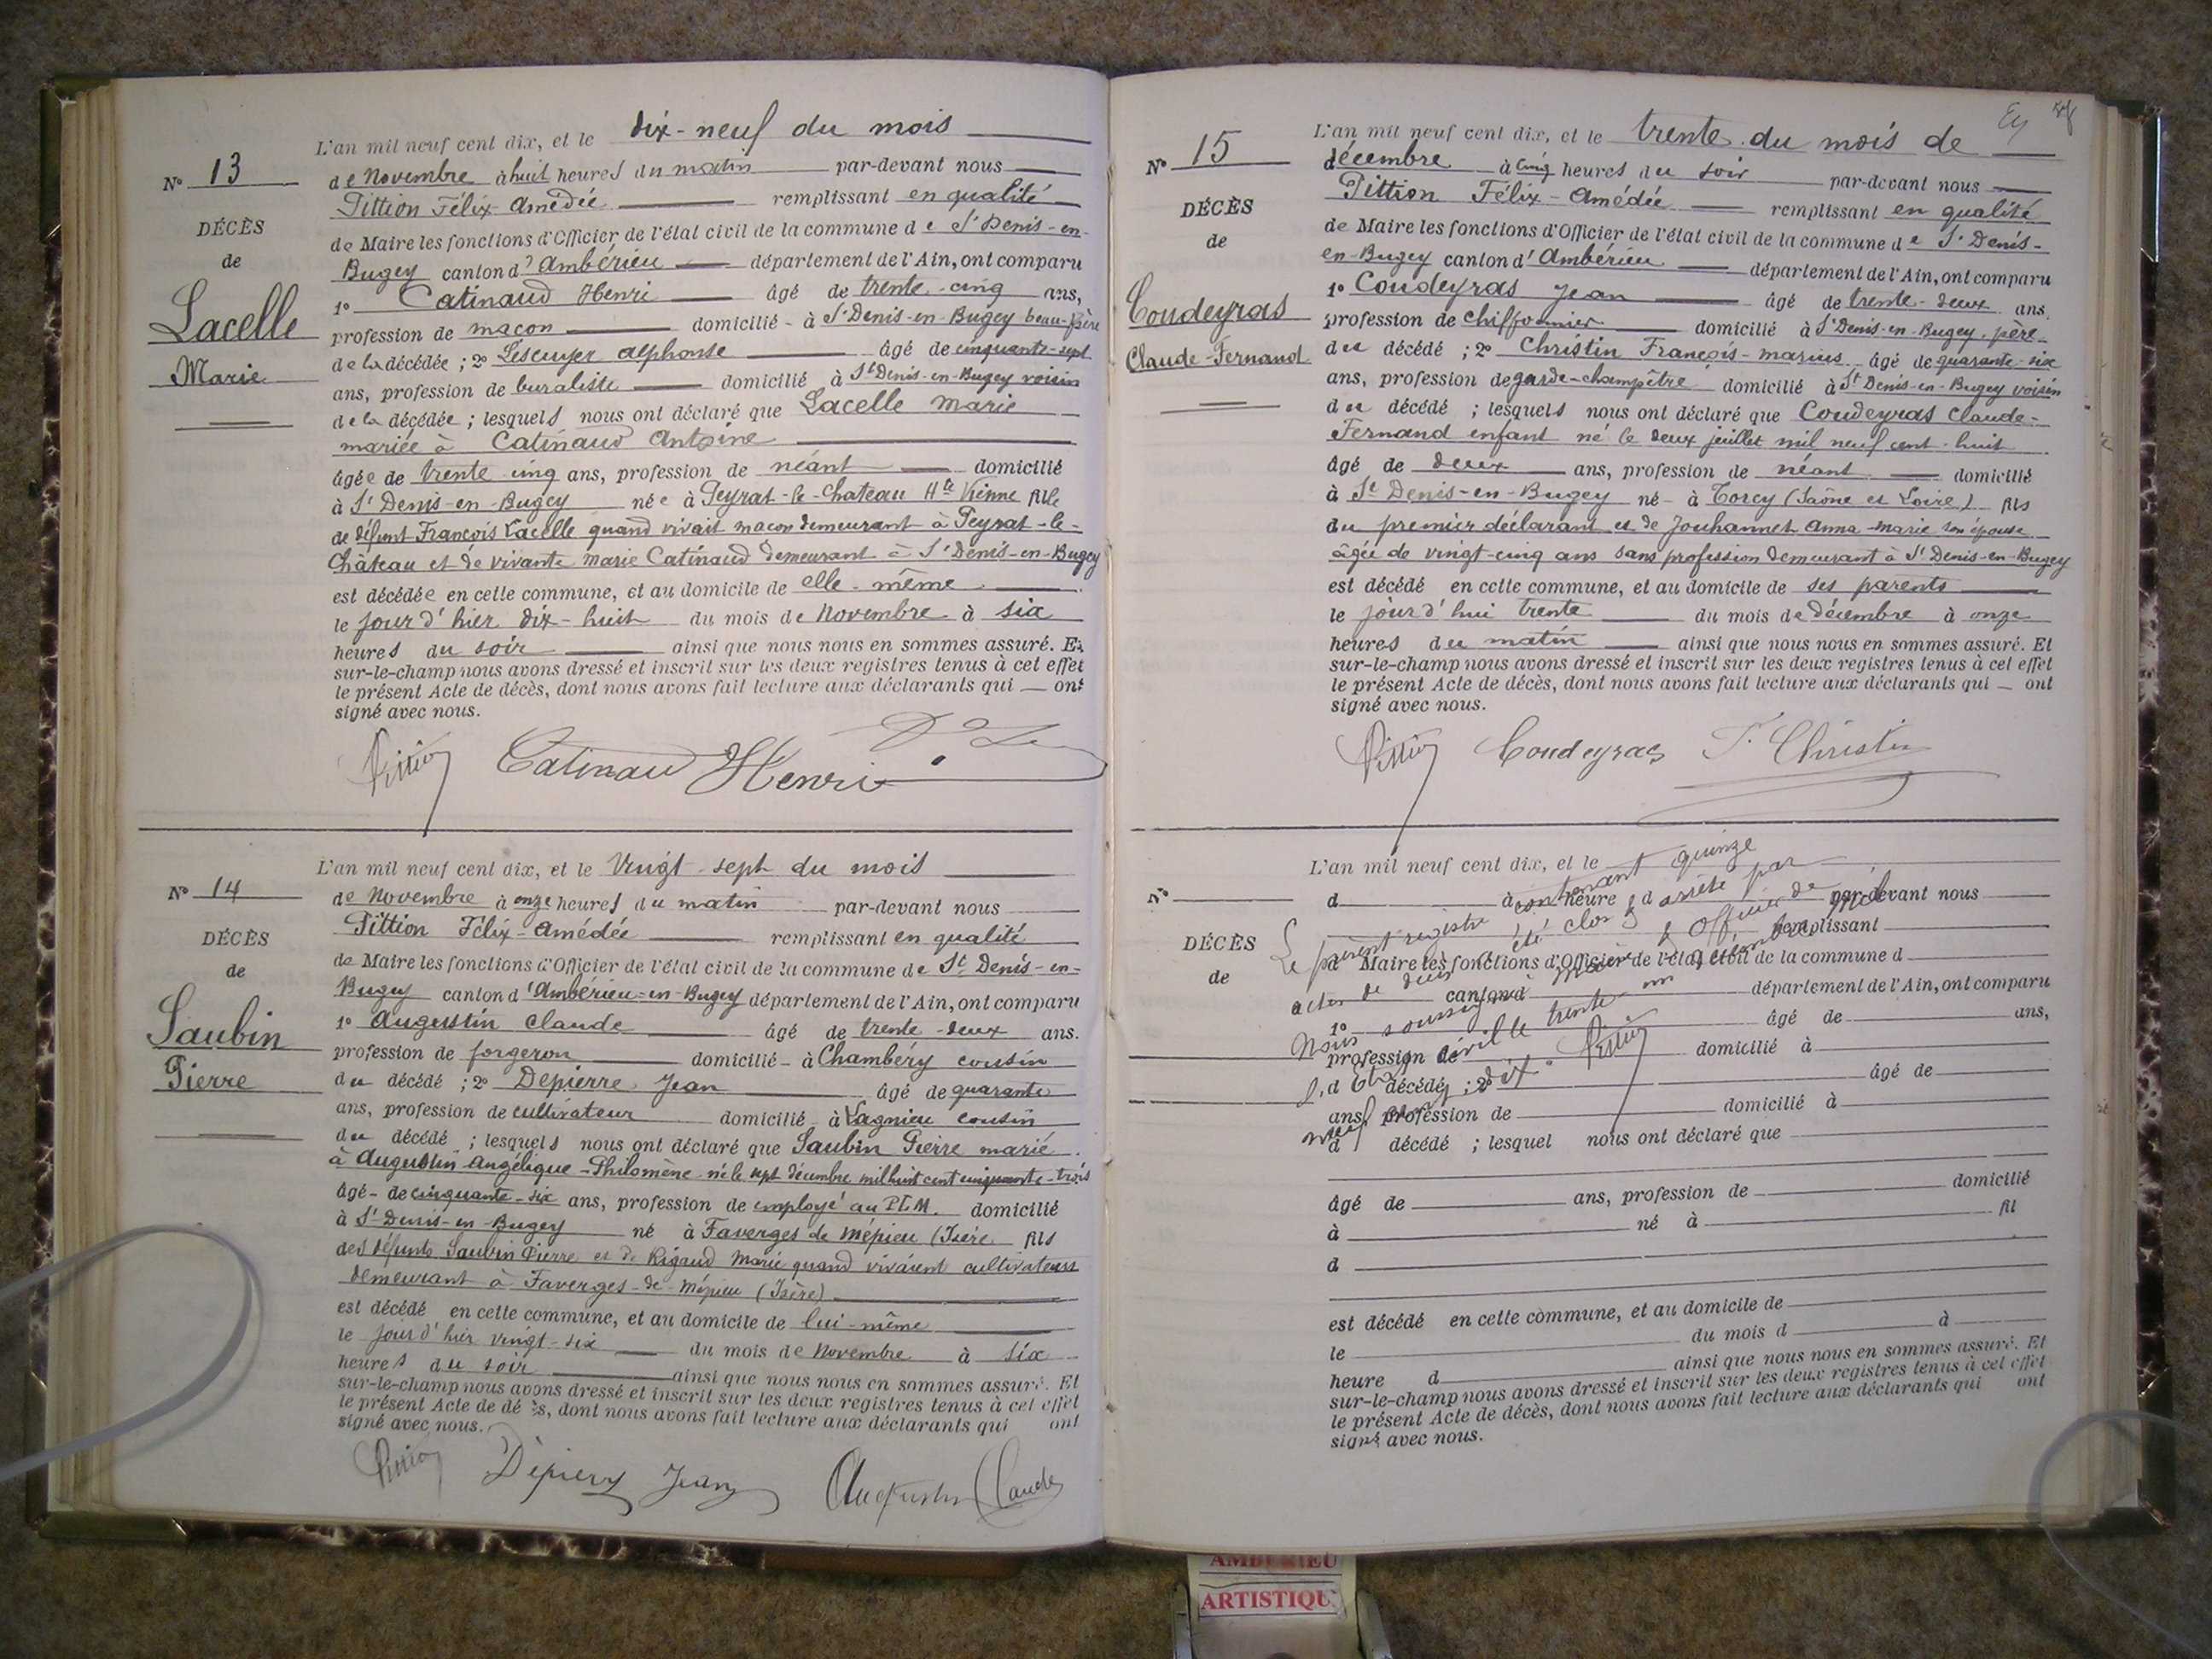 L'an mil neuf cent dix, et le dix-neuf du mois
N° 13
de Novembre à huit heures du matin par-devant nous
Pittion Félix-Amédée remplissant en qualité
DÉCÈS
de Maire les fonctions d'Officier de l'état civil de la commune de St Denis-en-
de
Bugey canton d'Ambérieu département de l'Ain, ont comparu
1° Catinaud Henri âgé de trente-cinq ans,
Lacelle
profession de maçon domicilié à St Denis-en-Bugey beau-frère
de la décédée ; 2° Lescuyer Alphonse âgé de cinquante-sept
Marie
ans, profession de buraliste domicilié à St Denis-en-Bugey voisin
de la décédée ; lesquels nous ont déclaré que Lacelle Marie
mariée à Catinaud Antoine
âgée de trente cinq ans, profession de néant domicilié
à St Denis-en-Bugey née à Peyrat-le-Chateau Hte Vienne fille
de défunt François Lacelle quand vivait maçon demeurant à Peyrat-le-
Château et de vivante Marie Catinaud demeurant à St Denis-en-Bugey
est décédée en cette commune, et au domicile de elle-même
le jour d'hier dix-huit du mois de Novembre à six
heures du soir ainsi que nous nous en sommes assuré. Et
sur-le-champ nous avons dressé et inscrit sur les deux registres tenus à cet effet
le présent Acte de décès, dont nous avons fait lecture aux déclarants qui ont
signé avec nous.
Pittion Catinaud Henri
L'an mil neuf cent dix, et le Vingt-sept du mois
N° 14
de Novembre à onze heures du matin par-devant nous
Pittion Félix-Amédée remplissant en qualité
DÉCÈS
de Maire les fonctions d'Officier de l'état civil de la commune de St Denis-en-
de
Bugey canton d'Ambérieu-en-Bugey département de l'Ain, ont comparu
1° Augustin Claude âgé de trente-deux ans.
Saubin
profession de forgeron domicilié à Chambéry cousin
Pierre
du décédé ; 2° Depierre Jean âgé de quarante
ans, profession de cultivateur domicilié à Lagnieu cousin
du décédé ; lesquels nous ont déclaré que Saubin Pierre marié
à Augustin Angélique-Philomène né le sept décembre mil huit cent cinquante-trois
âgé de cinquante-six ans, profession de employé au P.L.M. domicilié
à St Denis-en-Bugey né à Faverges de Mépieu (Isère fils
des défunts Saubin Pierre et de Rigaud Marie quand vivaient cultivateurs
demeurant à Faverges-de-Mépieu (Isère)
est décédé en cette commune, et au domicile de lui-même
le jour d'hier vingt-six du mois de Novembre à six
heures du soir ainsi que nous nous en sommes assuré. Et
sur-le-champ nous avons dressé et inscrit sur les deux registres tenus à cet effet
le présent Acte de décès, dont nous avons fait lecture aux déclarants qui ont
signé avec nous.
Pittion Depierre Jean Augustin Claude
L'an mil neuf cent dix, et le trente du mois de
N° 15
décembre à cinq heures du soir par-devant nous
Pittion Félix-Amédée remplissant en qualité
DÉCÈS
de Maire les fonctions d'Officier de l'état civil de la commune de St Denis-
de
en-Bugey canton d'Ambérieu département de l'Ain, ont comparu
1° Coudeyras Jean âgé de trente-deux ans.
Coudeyras
profession de chiffonnier domicilié à St Denis-en-Bugey père
Claude-Fernand
du décédé ; 2° Christin François-Marius âgé de quarante-six
ans, profession de garde-champêtre domicilié à St Denis-en-Bugey voisin
du décédé ; lesquels nous ont déclaré que Coudeyras Claude-
Fernand enfant né le deux juillet mil neuf cent huit
âgé de deux ans, profession de néant domicilié
à St Denis-en-Bugey né à Torcy (Saône et Loire) fils
du premier déclarant et de Jouhannet Anna-Marie son épouse
âgée de vingt-cinq ans sans profession demeurant à St Denis-en-Bugey
est décédé en cette commune, et au domicile de ses parents
le jour d'hui trente du mois de décembre à onze
heures du matin ainsi que nous nous en sommes assuré. Et
sur-le-champ nous avons dressé et inscrit sur les deux registres tenus à cet effet
le présent Acte de décès, dont nous avons fait lecture aux déclarants qui ont
signé avec nous.
Pittion Coudeyras F. Christin
L'an mil neuf cent dix, et le
N°
d à heure d par-devant nous
remplissant
DÉCÈS
d Maire les fonctions d'Officier de l'état civil de la commune d
de
canton d département de l'Ain, ont comparu
1° âgé de ans,
profession de domicilié à
d décédé ; 2° âgé de
ans, profession de domicilié à
d décédé ; lesquel nous ont déclaré que
âgé de ans, profession de domicilié
à né à fil
d
est décédé en cette commune, et au domicile de
le du mois d à
heure d ainsi que nous nous en sommes assuré. Et
sur-le-champ nous avons dressé et inscrit sur les deux registres tenus à cet effet
le présent Acte de décès, dont nous avons fait lecture aux déclarants qui ont
signé avec nous.
Le présent registre contenant quinze
actes de décès a été clos et arrêté par
Nous soussigné Maire et Officier de
l'état civil le trente un décembre mil
neuf cent dix.
Pittion
AMBERIEU
ARTISTIQU